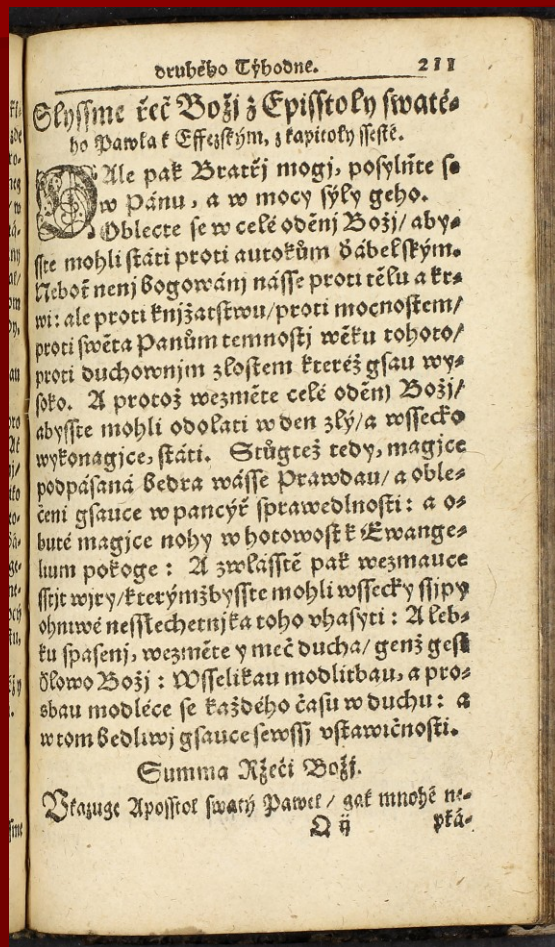 druhého Týhodne. 211
Slyssme řeč Božj z Episstoly swaté-
ho Pawla k Effezským, z kapitoly ssesté.
Ale pak Bratřj mogj, posylňte se
w Pánu, a w mocy sýly geho.
Oblecte se w celé oděnj Božj/ aby-
sste mohli státi proti autokům ďábelským.
Neboť nenj bogowánj násse proti tělu a kr-
wi: ale proti knjžatstwu/proti mocnostem/
proti swěta Panům temnostj wěku tohoto/
proti duchownjm zlostem kteréž gsau wy-
soko. A protož wezměte celé oděnj Božj/
abysste mohli odolati w den zlý/a wssecko
wykonagjce, státi. Stůgtež tedy, magjce
podpásaná bedra wásse Prawdau/ a oble-
čeni gsauce w pancýř sprawedlnosti: a o-
buté magjce nohy w hotowost k Ewange-
lium pokoge: A zwlásstě pak wezmauce
sstjt wjry/kterýmžbysste mohli wssecky ssjpy
ohniwé nesslechetnjka toho vhasyti: A leb-
ku spasenj, wezměte y meč ducha/ genž gest
Slowo Božj: Wsselikau modlitbau, a pro-
sbau modléce se každého času w duchu: a
w tom bedliwj gsauce sewssj vstawičnosti.
Summa Ržeči Božj.
Vkazuge Aposstol swatý Pawel/ gak mnohé ne-
Q ij přá-